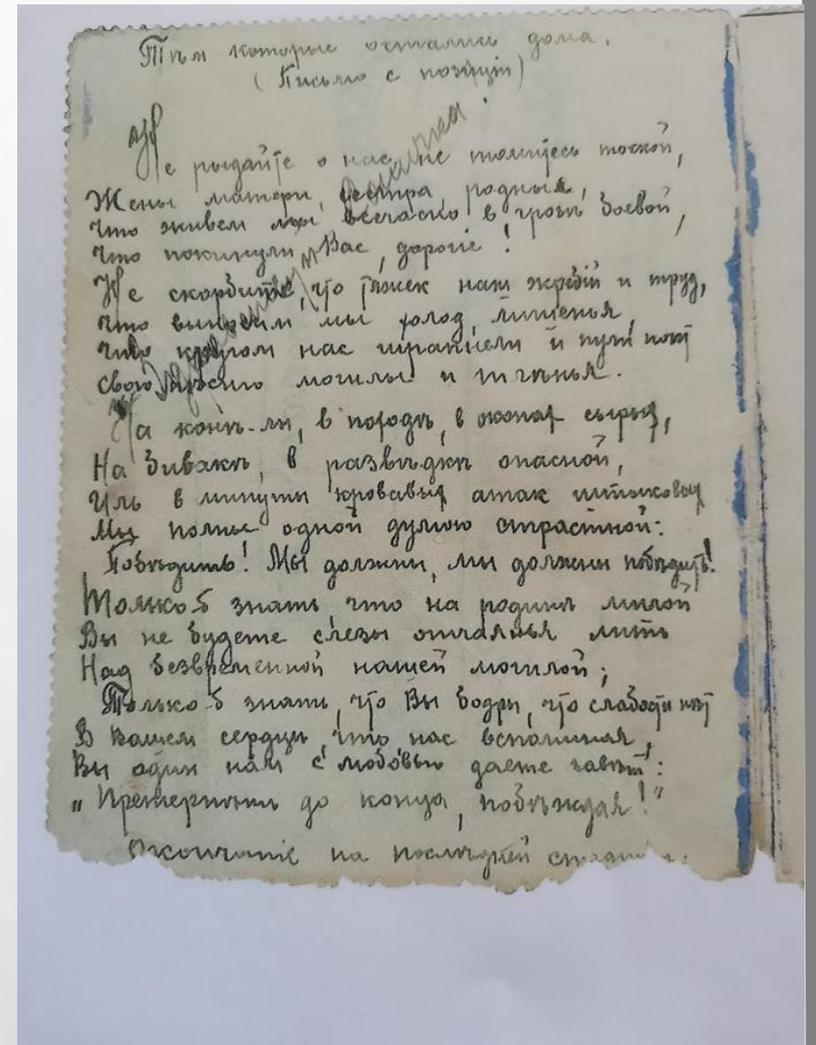 Тѣм которые остались дома.
(Письмо с позиціи)
Не рыдайте о нас, не томитесь тоской,
Жены, матери, сестры родныя,
Что живем мы всечасно в грозѣ боевой,
Что покинули Вас, дорогіе!
Не скорбите, что тяжек наш жребій и труд,
Что выносим мы холод, лишенья,
Что кругом нас шрапнели и пули поют
Свою пѣсню могилы и тлѣнья.
На конѣ-ли, в походѣ, в окопах сырых,
На бивакѣ, в развѣдкѣ опасной,
Иль в минуты кровавых атак штыковых
Мы полны одной думою страстной:
Побѣдить! Мы должны, мы должны побѣдить!
Только б знать, что на родинѣ милой
Вы не будете слезы отчаянья лить
Над безвременной нашей могилой;
Только б знать, что Вы бодры, что слабости нѣт
В Вашем сердцѣ, что нас вспоминая,
Вы один нам с любовью даете завѣт:
"Претерпѣть до конца, побѣждая!"
Окончаніе на послѣдней